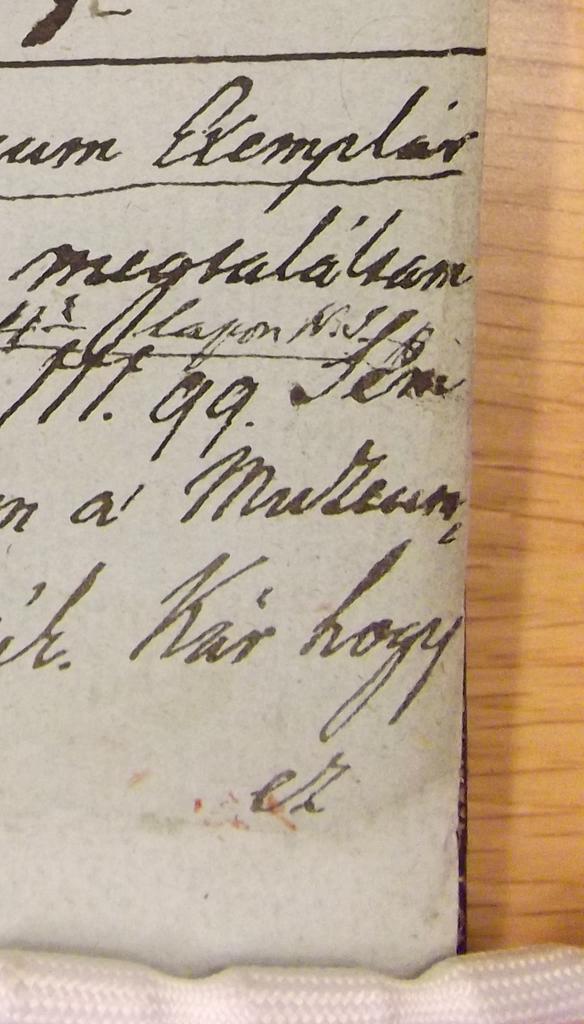 um Exemplár
megtaláltam
lapon N.
III. 99. Sem
n a' Muzeum,
ík. Kár hogy
ez